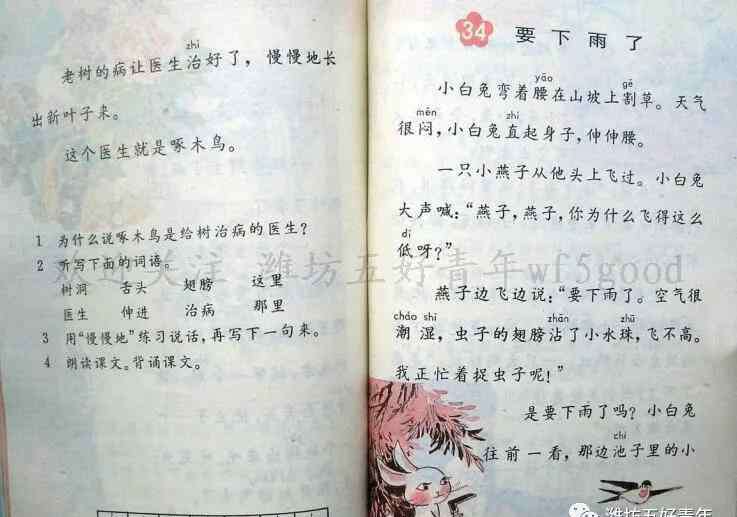 zhì
老树的病让医生治好了，慢慢地长
出新叶子来。
这个医生就是啄木鸟。
1 为什么说啄木鸟是给树治病的医生？
2 听写下面的词语。
树洞 舌头 翅膀 这里
医生 伸进 治病 那里
3 用“慢慢地”练习说话，再写下一句来。
4 朗读课文。背诵课文。
34 要下雨了
yāo gē
小白兔弯着腰在山坡上割草。天气
mēn zhí
很闷，小白兔直起身子，伸伸腰。
一只小燕子从他头上飞过。小白兔
大声喊：“燕子，燕子，你为什么飞得这么
dī
低呀？”
燕子边飞边说：“要下雨了。空气很
cháo shī zhān zhū
潮湿，虫子的翅膀沾了小水珠，飞不高。
我正忙着捉虫子呢！”
是要下雨了吗？小白兔
chí
往前一看，那边池子里的小
关注 潍坊五好青年wf5good
潍坊五好青年